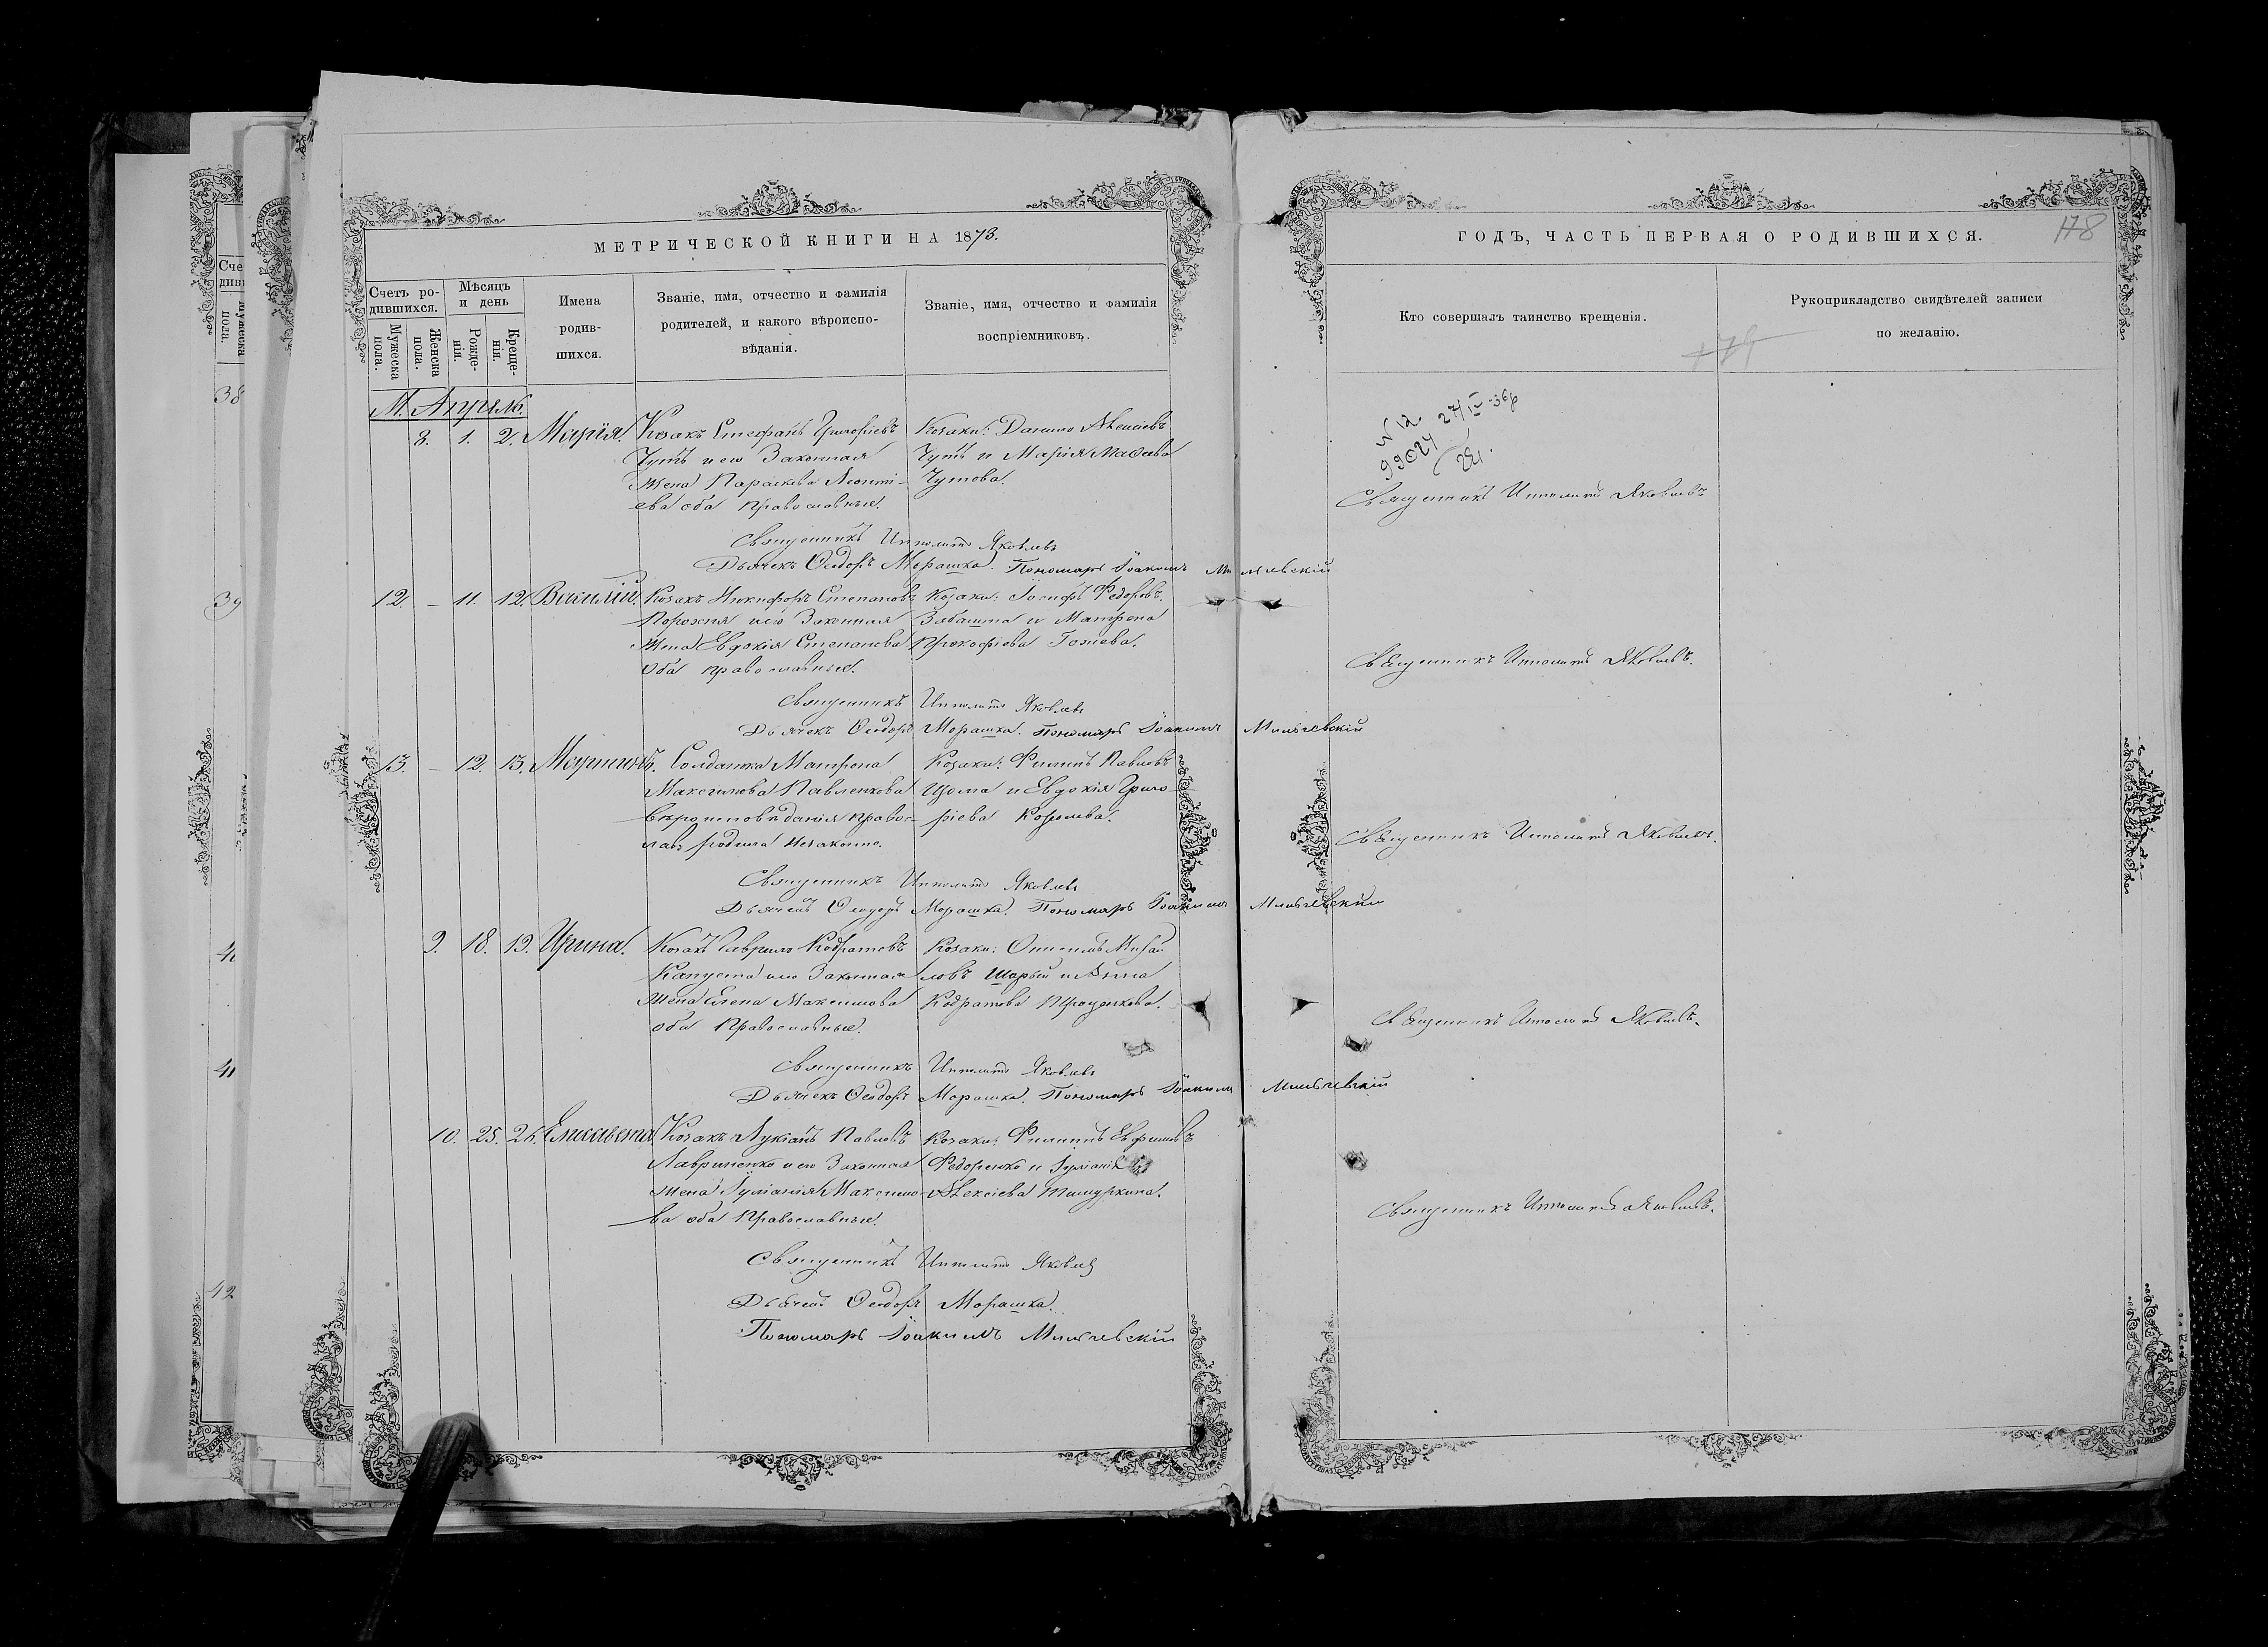 МЕТРИЧЕСКОЙ КНИГИ НА 1873.
Счетъ ро-
дившихся.
Мужеска
пола.
Женска
пола.
Мѣсяцъ
и день
Рожде-
нія.
Креще-
нія.
Имена
родив-
шихся.
Званіе, имя, отчество и фамилія
родителей, и какого вѣроиспо-
вѣданія.
Званіе, имя, отчество и фамилія
воспріемниковъ.
М. Апрѣль.
8. 1. 2. Марія. Козакъ Стефанъ Григоріевъ
Чутъ и его Законная
Жена Параскева Леонти-
ева оба Православные.
Козаки: Данило Алексіевъ
Чутъ и Марія
Чутова.
Священникъ Ипполитъ Яковлевъ
Дьячекъ Ѳеодоръ Морашка. Пономарь Іоакимъ
12. – 11. 12. Василій. Козакъ Никифоръ Степановъ
Порожня и его Законная
Жена Евдокія Степанова
Оба православные.
Козаки: Іосифъ Федоровъ
и Матрона
Прокофіева
Священникъ Ипполитъ Яковлевъ
Дьячекъ Ѳеодоръ Морашка. Пономарь Іоакимъ
13. – 12. 13. Мартинъ. Солдатка Матрона
Максимова Павленкова
вѣроисповѣданія правос-
лав: родила незаконно.
Козаки: Филипъ Павловъ
и Евдокія Григо-
ріева
Священникъ Ипполитъ Яковлевъ
Дьячекъ Ѳеодоръ Морашка. Пономарь Іоакимъ
9. 18. 19. Ирина. Козакъ Гаврило Кодратовъ
Капуста и его Законная
Жена Елена Максимова
оба Православные.
Козаки: Михаи
ловъ Шарый и Анна
Кодратова
Священникъ Ипполитъ Яковлевъ
Дьячекъ Ѳеодоръ Морашка. Пономарь Іоакимъ
10. 25. 26. Елисавета Козакъ Лукіанъ Павловъ
Лавриненко и его Законная
жена Іуліанія Максимо-
ва оба Православные.
Козаки: Филипъ Евфимовъ
Федоренко и Іуліанія
Алексіева
Священникъ Ипполитъ Яковлевъ
Дьячекъ Ѳеодоръ Морашка.
Пономарь Іоакимъ
ГОДЪ, ЧАСТЬ ПЕРВАЯ О РОДИВШИХСЯ.
Кто совершалъ таинство крещенія.
Рукоприкладство свидѣтелей записи
по желанію.
N 12 27/IV-36р
99024
Священникъ Ипполитъ Яковлевъ
Священникъ Ипполитъ Яковлевъ.
Священникъ Ипполитъ Яковлевъ.
Священникъ Ипполитъ Яковлевъ.
Священникъ Ипполитъ Яковлевъ.
Сче
диві
Мужеска
пола.
38
39
40
41
42